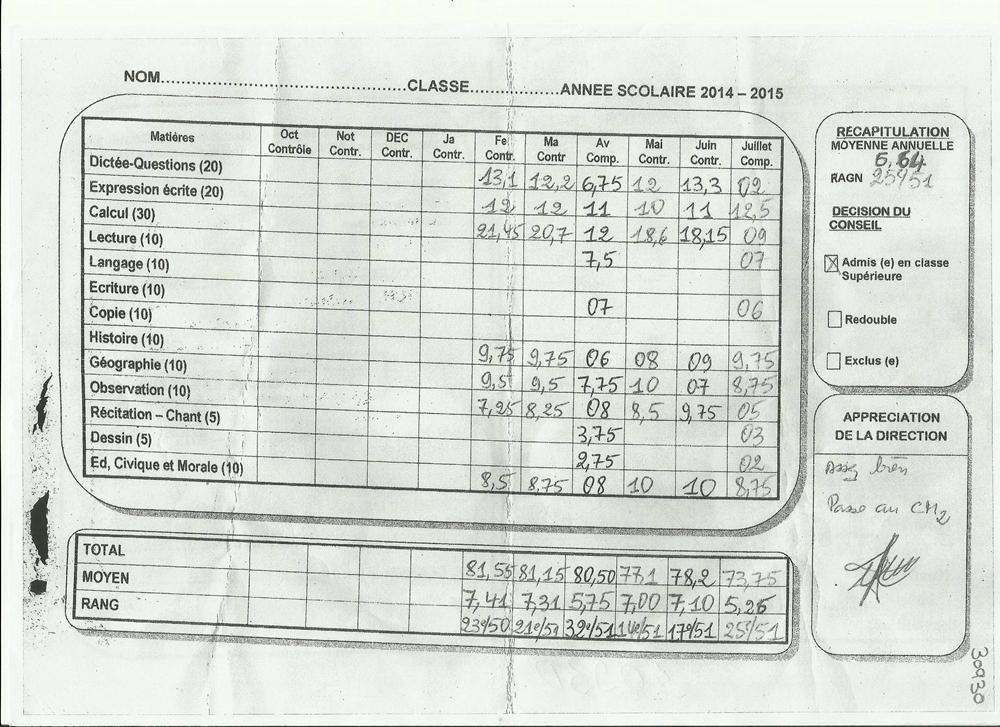 NOM..........................................................CLASSE.....................ANNEE SCOLAIRE 2014 – 2015
Matières Oct Contrôle Not Contr. DEC Contr. Ja Contr. Fe Contr. Ma Contr Av Comp. Mai Contr. Juin Contr. Juillet Comp.
Dictée-Questions (20) 13,1 12,2 6,75 12 13,3 02
Expression écrite (20) 12 12 11 10 11 12,5
Calcul (30) 21,45 20,7 12 18,6 18,15 09
Lecture (10) 7,5 07
Langage (10)
Ecriture (10) 07 06
Copie (10)
Histoire (10) 9,75 9,75 06 08 09 9,75
Géographie (10) 9,5 9,5 7,75 10 07 8,75
Observation (10) 7,25 8,25 08 8,5 9,75 05
Récitation – Chant (5) 3,75 03
Dessin (5) 2,75 02
Ed, Civique et Morale (10) 8,5 8,75 08 10 10 8,75
TOTAL 81,55 81,15 80,50 77,1 78,2 73,75
MOYEN 7,41 7,31 5,75 7,00 7,10 5,26
RANG 23e/50 21e/51 32e/51 14e/51 17e/51 25e/51
RÉCAPITULATION
MOYENNE ANNUELLE
6,64
RAGN 25e/51
DECISION DU
CONSEIL
Admis (e) en classe
Supérieure
Redouble
Exclus (e)
APPRECIATION
DE LA DIRECTION
Assez bien
Passe au CM2
30930